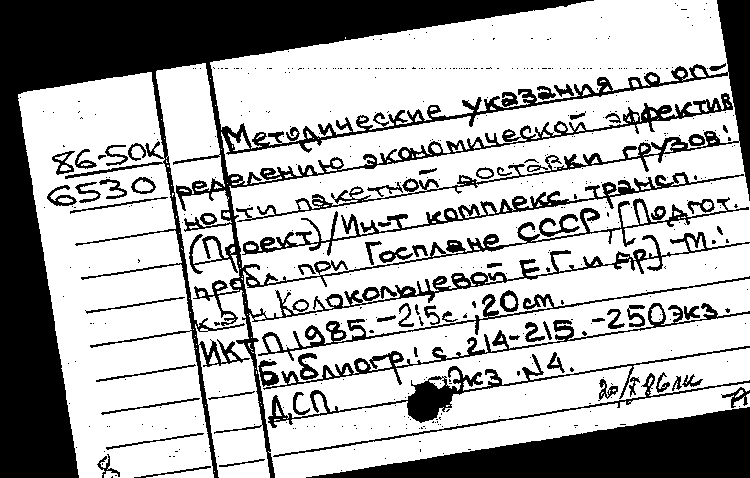 86-50к
6530
Методические указания по оп-
ределению экономической эффектив
ности пакетной доставки грузов:
(Проект)/Ин-т комплекс. трансп.
пробл. при Госплане СССР; [Подгот.
к.э.н. Колокольцевой Е.Г. и др.].-М.:
ИКТП, 1985.-215с.; 20см.
Библиогр.: с. 214-215.-250экз.
ДСП. Экз. N4.
8